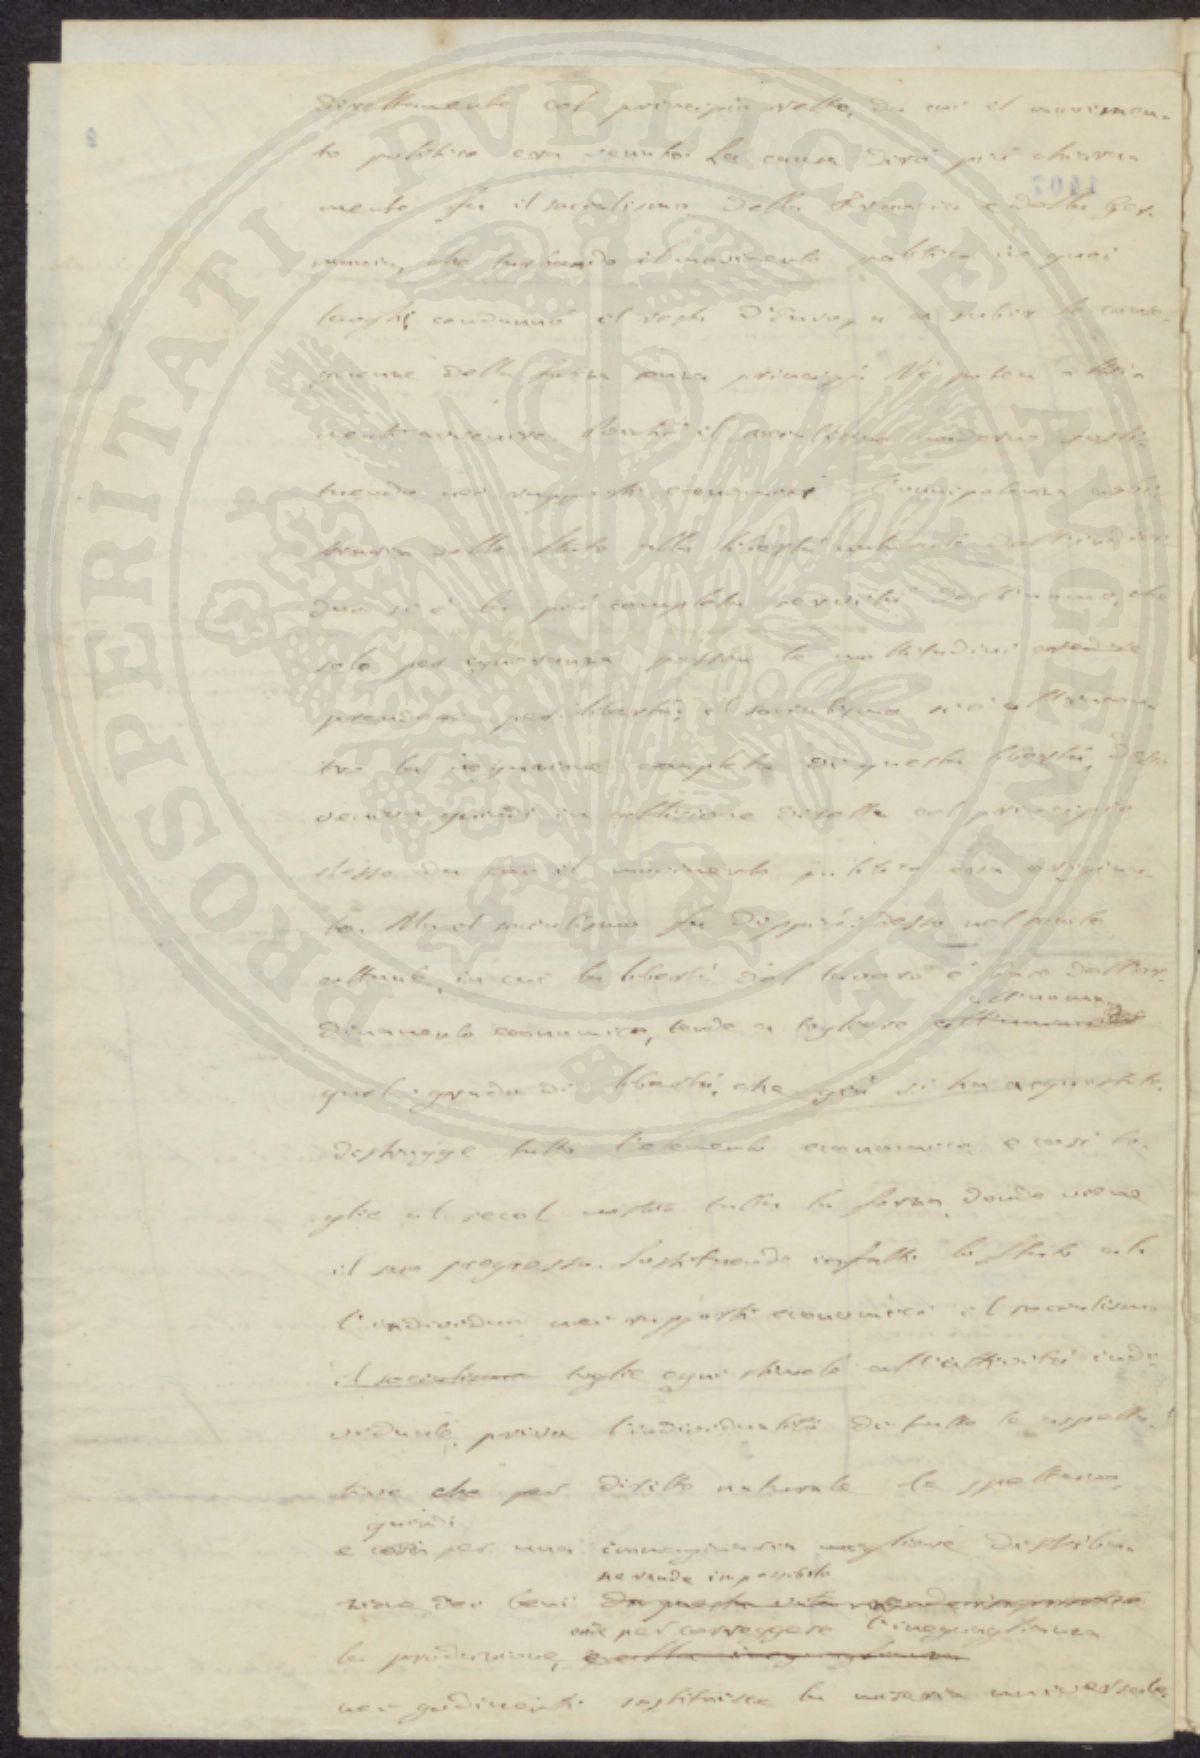 direttamente col principio retto, da cui il movimen-
to politico era venuto. La causa dirò più chiara
mente fu il socialismo della Francia e della Ger-
mania, che turbando il movimento politico in quei
luoghi condannò il resto d'Europa a subir le conse-
guenze della forza senza principj. Nè potea altri
menti avvenire. Poichè il socialismo moderno sosti-
tuendo nei rapporti economici l'onnipotenza arbi
traria dello Stato alla libertà naturale dell'indivi-
duo si è la più completa servitù dell'uomo, che
solo per ignoranza posson le moltitudini
prendere per libertà; il socialismo
la negazione completa di questa libertà,
veniva quindi in collisione diretta col principio
stesso da cui il movimento politico era origina-
to. Ma il socialismo fu di più: desso nel mentre
attuale, in cui la libertà del lavoro è base dell'or-
dinamento economico, tende a togliere all'uomo
quel grado di libertà, che già si ha acquistato,
distrugge tutto l'elemento economico e così to-
glie al secol nostro tutta la forza, donde viene
il suo progresso. Sostituendo infatti lo Stato al
l'individuo nei rapporti economici il socialismo
il socialismo toglie ogni stimolo all'attività indi-
viduale, priva l'individualità di tutte le aspetta-
tive che per diritto naturale le spettano,
quindi
e così per una immaginaria migliore distribu-
ne rende impossibile
zione dei beni
onde per correggere l'ineguaglianza
la produzione, e alla ineguaglianza
nei godimenti sostituisce la miseria universale
PROSPERITATI PVBLICAE AVGENDAE